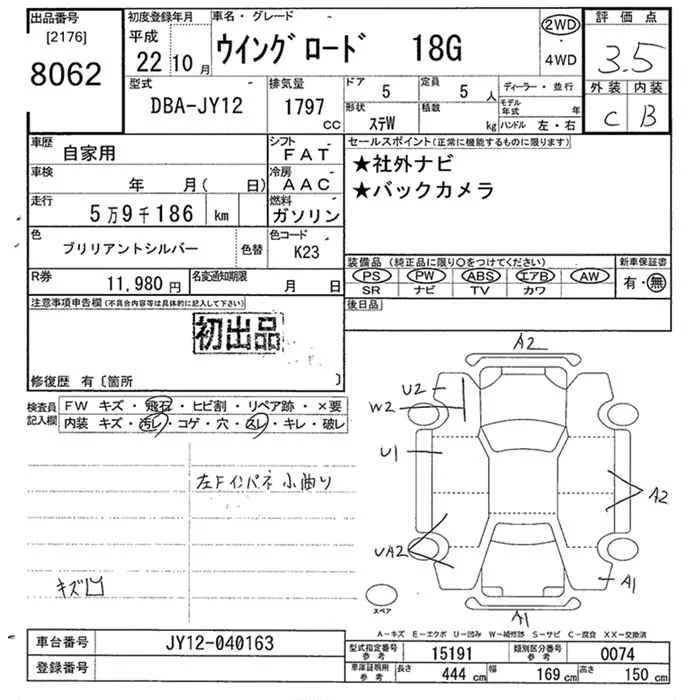 出品番号
[2176]
8062
初度登録年月
平成
22年10月
車名・グレード
ウイングロード 18G
2WD
・
4WD
評価点
3.5
外装 内装
C B
型式
DBA-JY12
排気量
1797
CC
ドア
5
定員
5人
形状
ステW
積載
kg
ディーラー・並行
モデル年式 年
ハンドル 左・右
車歴
自家用
シフト
FAT
車検
年 月( 日)
冷房
AAC
走行
5万9千186 km
燃料
ガソリン
色
ブリリアントシルバー
色替
色コード
K23
R券
11,980円
名変通知期限
月 日
セールスポイント(正常に機能するものに限ります)
★社外ナビ
★バックカメラ
装備品(純正品に限り○をつけてください)
PS PW ABS エアB AW
SR ナビ TV カワ
新車保証書
有・無
後日品
注意事項申告欄(不具合内容等は具体的に記入して下さい)
初出品
修復歴 有〔箇所 〕
検査員記入欄
FW キズ・飛石・ヒビ割・リペア跡・×要
内装 キズ・汚レ・コゲ・穴・スレ・キレ・破レ
左Fインパネ小曲り
キズ凹
A2
U2
W2
U1
A2
UA2
A1
A1
スペア
A-キズ E-エクボ U-凹み W-補修跡 S-サビ C-腐食 XX-交換済
車台番号
JY12-040163
登録番号
型式指定番号 参考
15191
類別区分番号 参考
0074
車庫証明用 参考
長さ 444 cm 幅 169 cm 高さ 150 cm